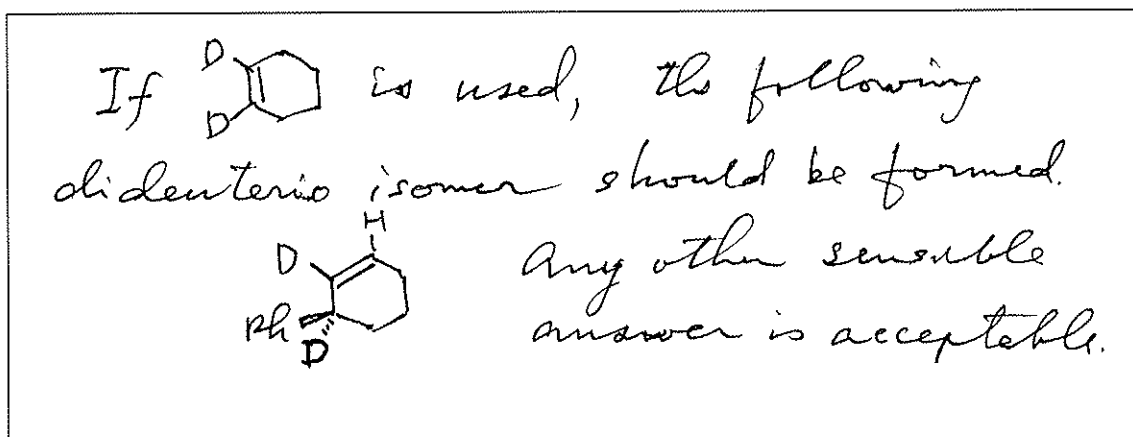 If D D is used, the following
dideuterio isomer should be formed.
H
D Any other sensible
Ph D answer is acceptable.